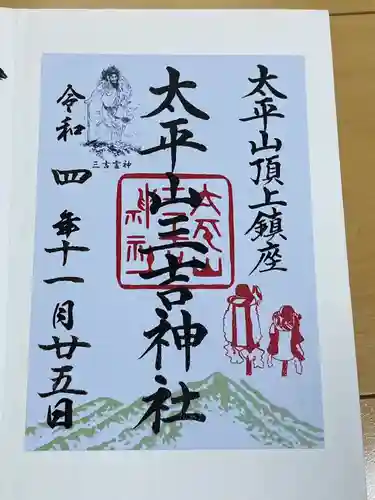 太平山頂上鎮座
太平山三吉神社
三吉霊神
令和四年十一月廿五日